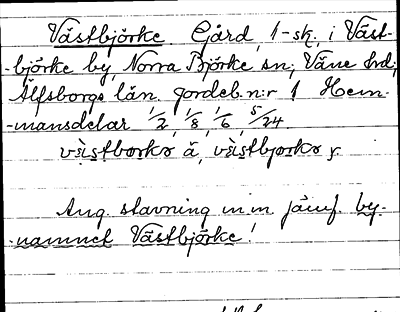 Västbjörke Gård, 1-sk, i Väst-
-björke by, Norra Björke sn; Väne hd;
Älfsborgs län. Jordeb. n:r 1 Hem-
-mansdelar 1/2, 1/8, 1/6, 5/24.
vèstborkɤ ä, vèstbjorkɤ y.
Ang. stavning m.m. jämf. by-
-namnet Västbjörke!